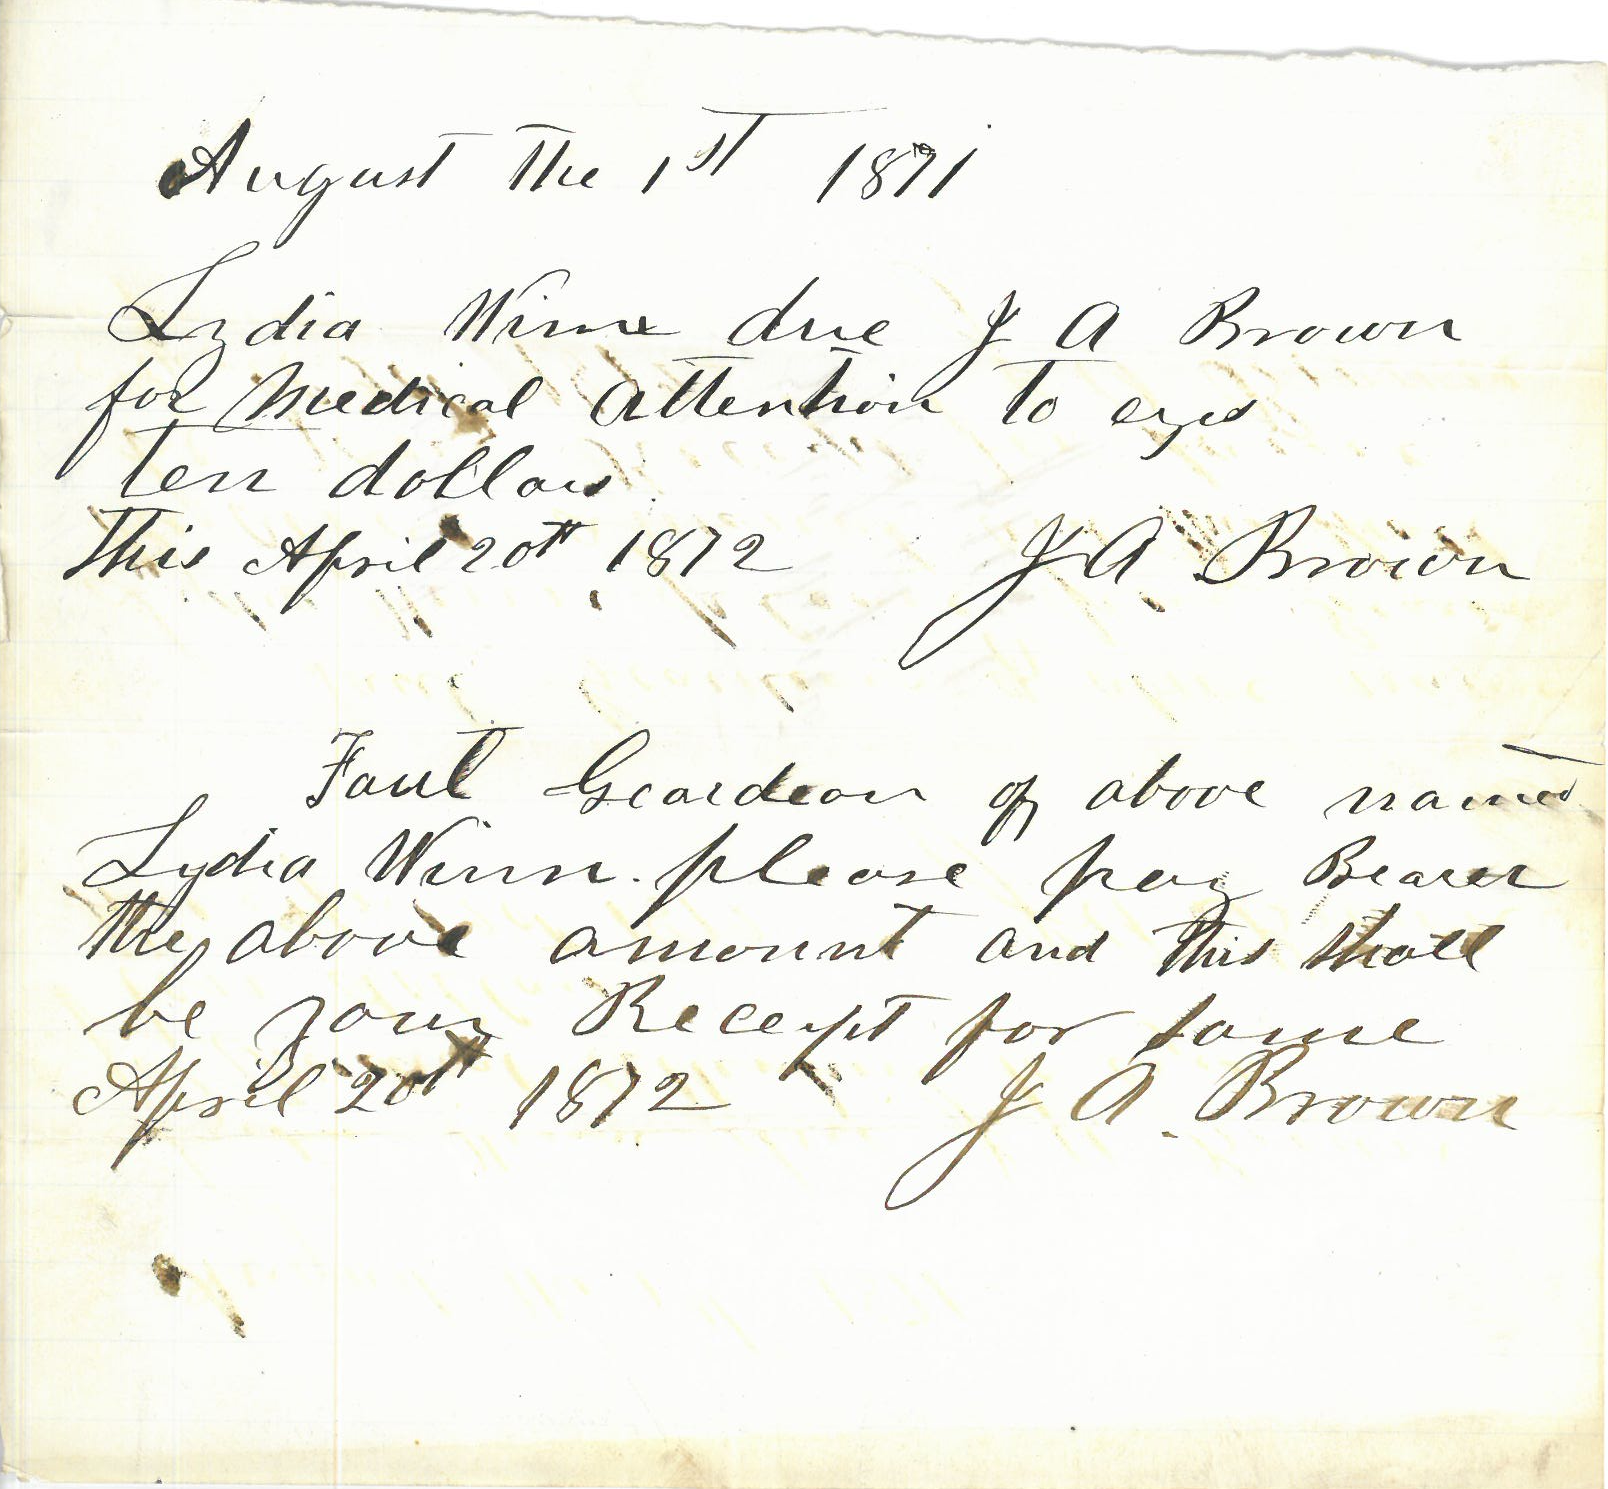 August the 1st 1871
Lydia Winn due J A Brown
for Medical Attention to eyes
ten dollars
This April 20th 1872 J A Brown
Geardean of above named
Lydia Winn. please pay Bearer
the above amount and this shall
be your Receipt for same
April 20th 1872 J A. Brown